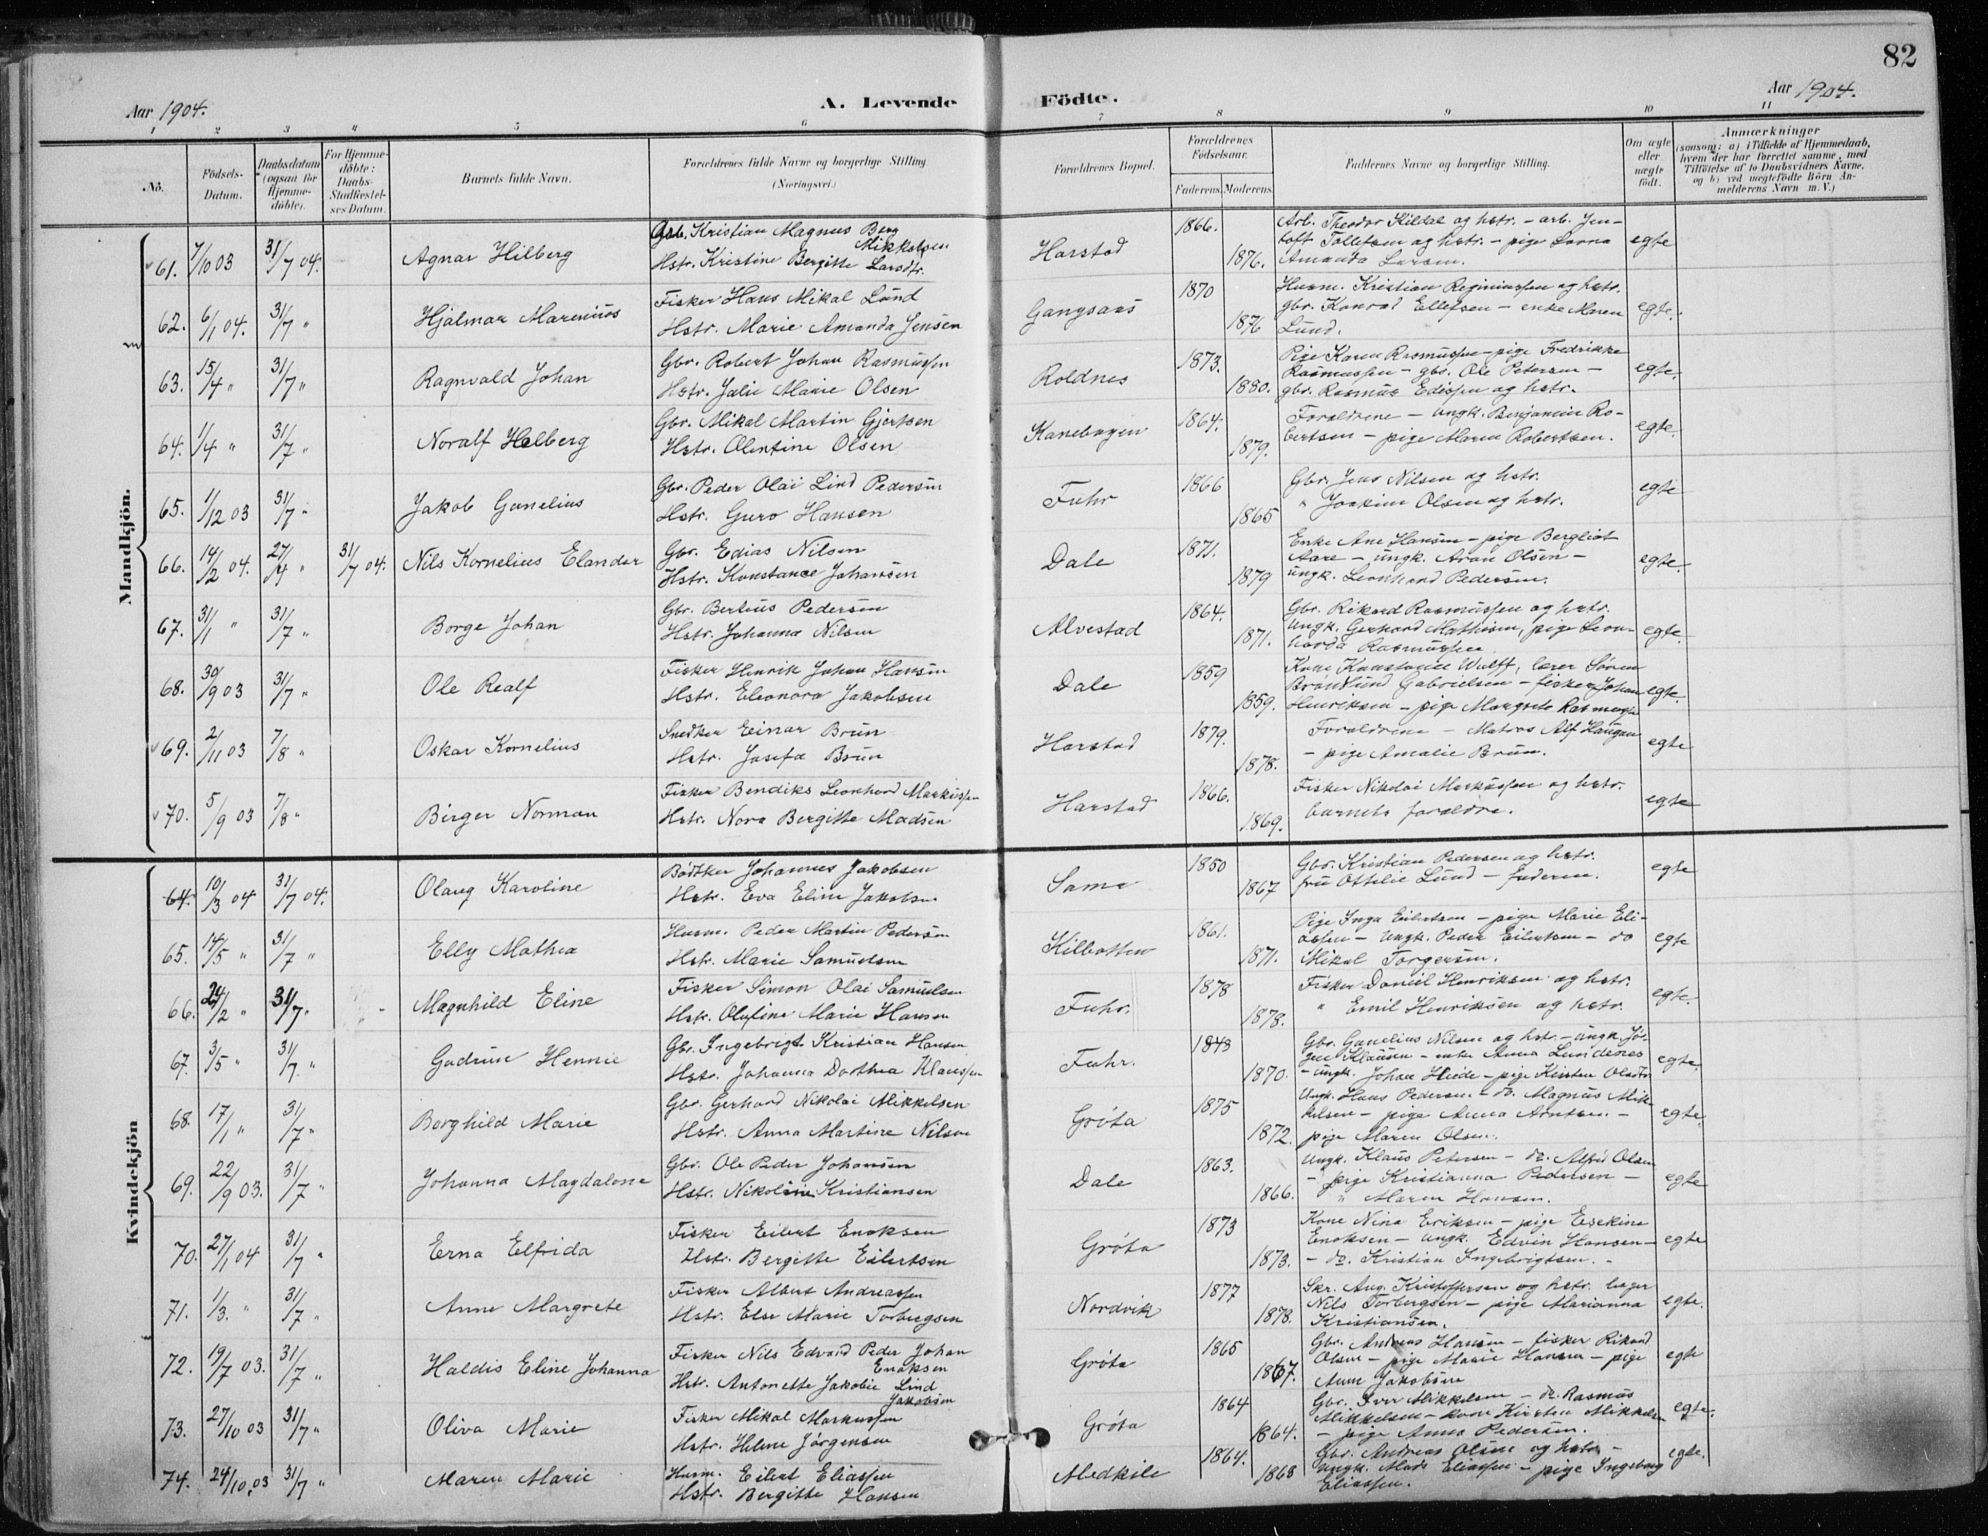 82
Aar 1904.
A. Levende Födte.
Aar 1904.
1 2 3 4 5 6 7 8 9 10 11
No.
Födsels-Datum.
Daabsdatum (ogsaa for Hjemme-döbte).
For Hjemme-döbte: Daabs-Stadfæstel-ses Datum.
Barnets fulde Navn.
Forældrenes fulde Navne og borgerlige Stilling
(Næringsvei.)
Forældrenes Bopæl.
Forældrenes Födselsaar.
Faderens. Moderens.
Faddernes Navne og borgerlige Stilling.
Om ægte eller uægte födt.
Anmærkninger
(saasom: a) i Tilfælde af Hjemmedaab,
hvem der har forrettet samme, med
Tilföielse af to Daabsvidners Navne.
og b) ved uægtefödte Börn An-
melderens Navn m. V.)
Mandkjön.
61. 7/10 03 31/7 04. Agnar Hilberg Gbr. Kristian Magnus Berg Mikkelsen Harstad 1866. Arb. Theodor Kildal og hstr. – arb. Jen-
Hstr. Kristine Bergitte Larsdtr. 1876. toft Tollefsen og hstr. – pige Lorna egte
Amanda Larsen.
62. 6/1 04. 31/7 " Hjalmar Marenius Fisker Hans Mikal Lund Gangsaas 1870 Husm. Kristian Reginiussen og hstr.
Hstr. Marie Amanda Jensen 1876 gbr. Konrad Ellefsen – enke Maren egte.
Lund.
63. 15/4 " 31/7 " Ragnvald Johan Gbr. Robert Johan Rasmussen Roldnes 1873. Pige Karen Rasmussen – pige Fredrikke
Hstr. Julie Marie Olsen 1880. Rasmussen – gbr. Ole Petersen – egte.
gbr. Rasmus Edissen og hstr.
64. 1/4 " 31/7 " Noralf Helberg Gbr. Mikal Martin Gjertsen Kanebogen 1864. Forældrene – ungk. Benjamin Ro-
Hstr. Olentine Olsen 1879. bertsen – pige Maren Robertsen. egte.
65. 1/12 03 31/7 " Jakob Gunelius Gbr. Peder Olai Lind Pedersen Fuhr 1866 Gbr. Jens Nilsen og hstr.
Hstr. Guro Hansen 1865 " Joakim Olsen og hstr. egte
66. 14/2 04. 27/4 " 31/7 04. Nils Kornelius Elander Gbr. Edias Nilsen Dale 1871. Enke Ane Hansen – pige Bergliot
Hstr. Konstance Johansen 1879 Aare – ungk. Aron Olsen – egte.
ungk. Leonhard Pedersen.
67. 31/1 " 31/7 " Borge Johan Gbr. Berteus Pedersen Alvestad 1864. Gbr. Rikard Rasmussen og hstr.
Hstr. Johanna Nilsen 1871. Ungk. Gerhard Mathisen, pige Leon- egte.
harda Rasmussen
68. 30/9 03 31/7 " Ole Realf Fisker Henrik Johan Hansen Dale 1859 Kone Konstance Wulff, lærer Sören
Hstr. Eleonora Jakobsen 1859. Brönlund Gabrielsen – fisker Johan egte.
Henriksen – pige Margrete Rasmussen
69. 2/11 03 7/8 " Oskar Kornelius Snedker Einar Brun Harstad 1879. Forældrene – Matros Alf Haugen
Hstr. Josefa Brun 1878. – pige Amalie Brun. egte
70. 5/9 03 7/8 " Birger Norman Fisker Bendiks Leonhard Markussen Harstad 1866. Fisker Nikolai Markussen og hstr.
Hstr. Nora Bergitte Madsen 1869. barnets forældre. egte
Kvindekjön
64. 10/3 04 31/7 04. Olaug Karoline Bödker Johannes Jakobsen Sama 1850 Gbr. Kristian Pedersen og hstr.
Hstr. Eva Eline Jakobsen 1867 fru Ottilie Lund – faderen. egte
65. 14/5 " 31/7 " Elly Mathea Husm. Peder Martin Pedersen Kilbotten 1861. Pige Inga Eilertsen – pige Marie Eli-
Hstr. Marie Samuelsen 1871. assen – Ungk. Peder Eilertsen – do egte
Mikal Torgersen.
66. 24/2 " 31/7 " Magnhild Eline Fisker Simon Olai Samuelsen Fuhr. 1878 Fisker Daniel Henriksen og hstr.
Hstr. Olufine Marie Hansen 1878. " Emil Henriksen og hstr. egte.
67. 3/5 " 31/7 " Gudrun Hennie Gbr. Ingebrigt Kristian Hansen Fuhr. 1843 Gbr. Gunelius Nilsen og hst. – ungk. Jö-
Hstr. Johanna Dorthea Klaussen 1870. gen Klausen – enke Anna Lundenes egte.
– ungk. Johan Heide – pige Kirsten Olsdtr
68. 17/1 " 31/7 " Borghild Marie Gbr. Gerhard Nikolai Mikkelsen Gröta 1875 Ungk. Hans Pedersen – do. Magnus Mik-
Hstr. Anna Martine Nilsen 1872. kelsen – pige Anna Arntsen – egte.
pige Maren Olsen.
69. 22/9 03. 31/7 " Johanna Magdalone Gbr. Ole Peder Johansen Dale 1863. Ungk. Klaus Petersen – do. Alfr Olsen
Hstr. Nikoline Kristiansen 1866. – pige Kristianna Pedersen – egte
" Maren Hansen.
70. 27/1 04 31/7 " Erna Elfrida Fisker Eilert Enoksen Gröta 1873 Kone Nina Eriksen – pige Eeskine
Hstr. Bergitte Eilertsen 1873. Enoksen – ungk. Edvin Hansen – egte
– do. Kristian Ingebrigtsen. –
71. 1/3. " 31/7 " Anne Margrete Fisker Albert Andreassen Nordvik 1877 Skr. Aug. Kristoffersen og hstr. bager
Hstr. Else Marie Torbergsen 1878. Nils Torbergsen – pige Marianna egte.
Kristiansen.
72. 19/7 03. 31/7 " Haldis Eline Johanna Fisker Nils Edvard Peder Johan Enoksen Gröta 1865 Gbr. Andreas Hansen – fisker Rikard
Hstr. Antonette Jakobie Lind Jakobsen 1867. Olsen – pige Marie Hansen – pige egte
Anne Jakobsen
73. 27/10 03 31/7 " Oliva Marie Fisker Mikal Markussen Gröta 1864 Gbr. Iver Mikkelsen – do. Rasmus
Hstr. Helene Jörgensen 1864. Mikkelsen – kone Kirsten Mikkelsen egte.
– pige Anna Pedersen.
74. 24/10,03 31/7 " Maren Marie Husm. Eilert Eliassen Medkile 1864. Gbr. Andreas Olsen og hstr –
Hstr. Bergitte Hansen 1868 ungk. Mads Eliassen – pige Ingeborg egte.
Eliassen.